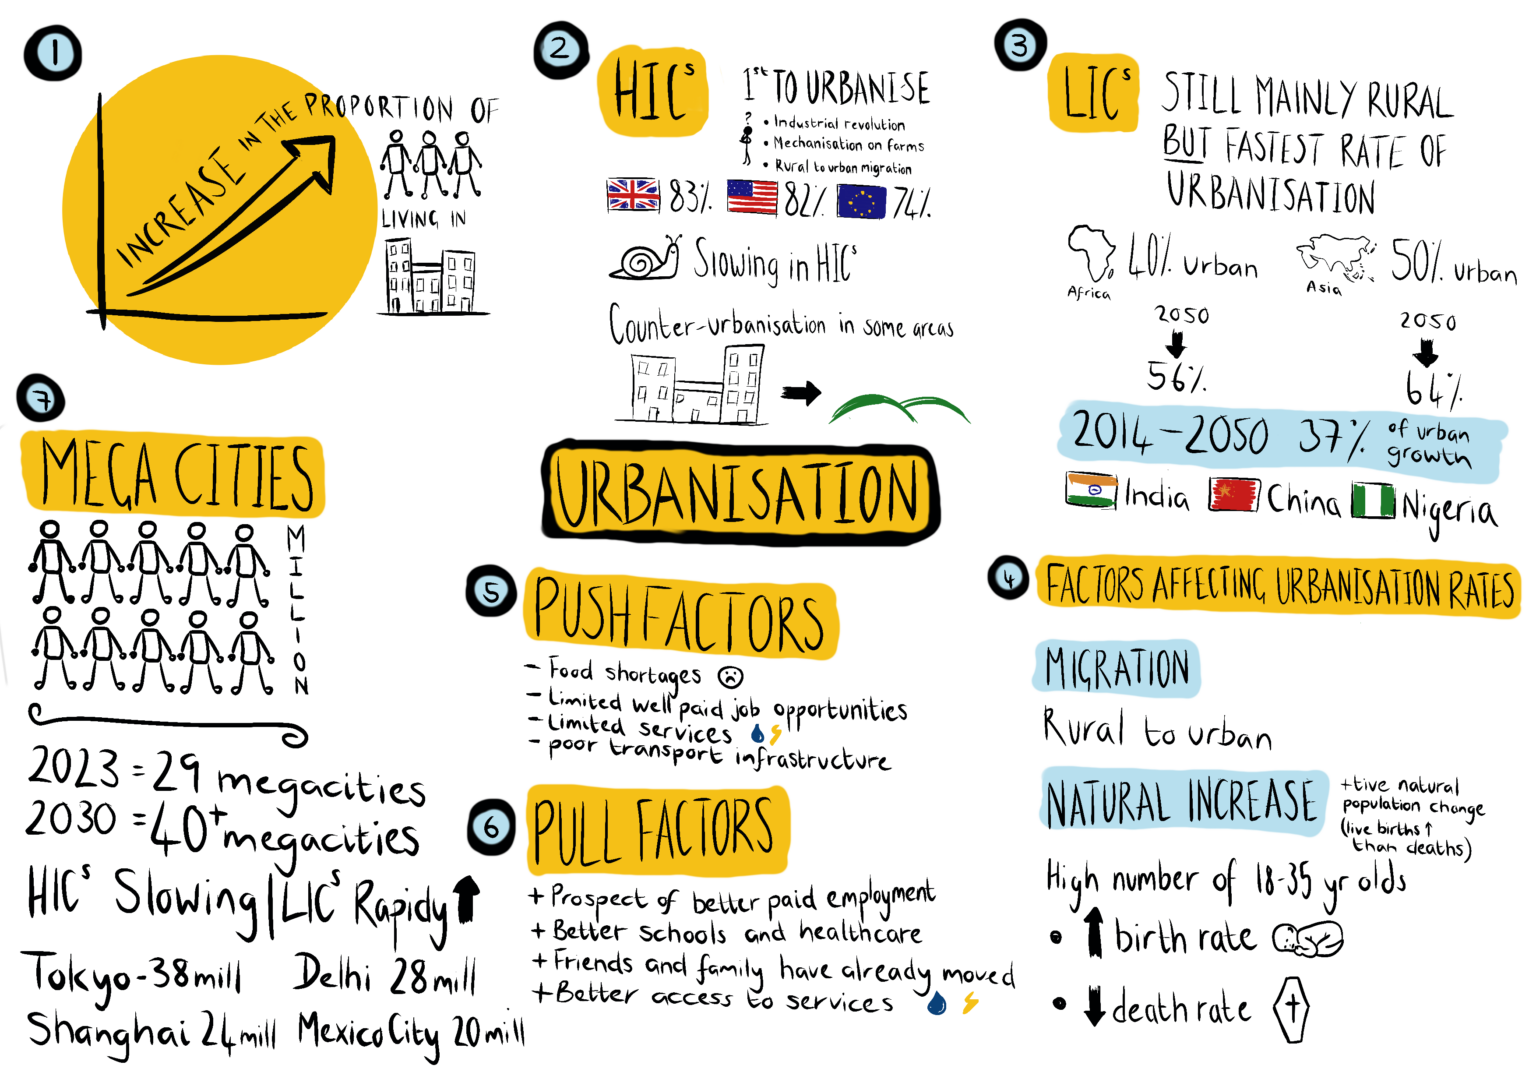 1
INCREASE IN THE PROPORTION OF
LIVING IN
2
HICs
1st TO URBANISE
?
• Industrial revolution
• Mechanisation on farms
• Rural to urban migration
83% 82% 74%
Slowing in HICs
Counter-urbanisation in some areas
3
LICs
STILL MAINLY RURAL
BUT FASTEST RATE OF
URBANISATION
40% urban
Africa
50% urban
Asia
2050
56%
2050
64%
2014-2050 37% of urban
growth
India China Nigeria
URBANISATION
4
FACTORS AFFECTING URBANISATION RATES
MIGRATION
Rural to urban
NATURAL INCREASE
+tive natural
population change
(live births↑
than deaths)
High number of 18-35 yr olds
• ↑ birth rate
• ↓ death rate
5
PUSH FACTORS
- Food shortages
- Limited well paid job opportunities
- Limited services
- poor transport infrastructure
6
PULL FACTORS
+ Prospect of better paid employment
+ Better schools and healthcare
+ Friends and family have already moved
+ Better access to services
7
MEGA CITIES
MILLION
2023 = 29 megacities
2030 = 40+ megacities
HICs Slowing | LICs Rapidy ↑
Tokyo-38mill Delhi 28mill
Shanghai 24mill Mexico City 20mill